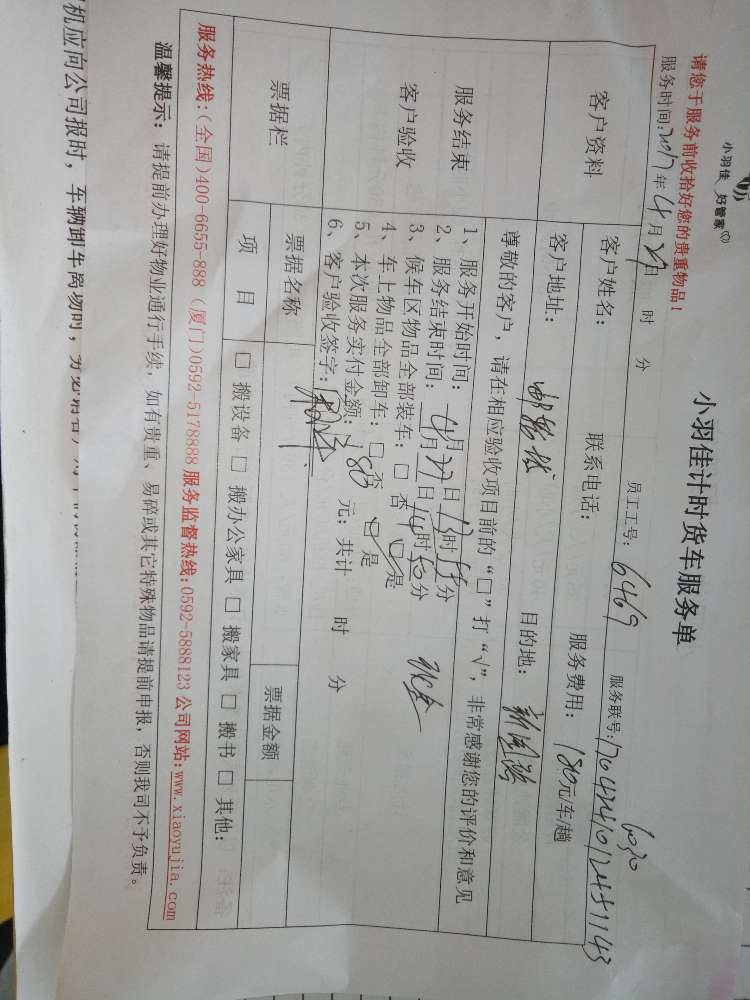 小羽佳 好管家
请您于服务前收拾好您的贵重物品！
小羽佳计时货车服务单
服务时间：2017年4月27日 时 分 员工工号：6469 服务联号：
客户资料
客户姓名： 联系电话： 服务费用：180元/车/趟
客户地址： 目的地：
服务结束
客户验收
尊敬的客户，请在相应验收项目前的“□”打“√”，非常感谢您的评价和意见
1、服务开始时间：4月27日13时 分
2、服务结束时间：4月27日14时50分
3、候车区物品全部装车：□ 否 □ 是
4、车上物品全部卸车：□ 否 □ 是
5、本次服务实付金额：180 元；共计 时 分
6、客户验收签字：
票据栏
票据名称 票据金额
项 目 □ 搬设备 □ 搬办公家具 □ 搬家具 □ 搬书 □ 其他：
服务热线：(全国)400-6655-888 (厦门)0592-5178888 服务监督热线：0592-5888123 公司网站：www.xiaoyujia.com
温馨提示：请提前办理好物业通行手续，如有贵重、易碎或其它特殊物品请提前申报，否则我司不予负责。
机应向公司报时，车辆卸车离场时，务必请客户